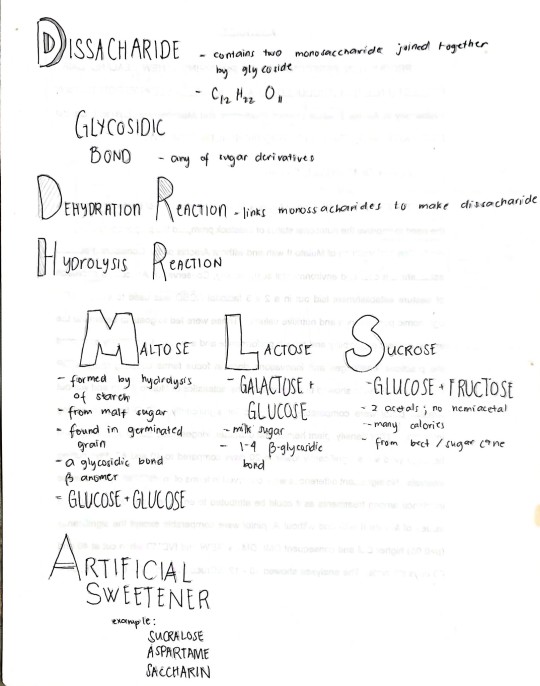 DISSACHARIDE - contains two monosaccharide joined together
by glycoside
- C12 H22 O11
GLYCOSIDIC
BOND - any of sugar derivatives
DEHYDRATION REACTION - links monossacharides to make dissacharide
HYDROLYSIS REACTION
MALTOSE
- formed by hydrolysis
of starch
- from malt sugar
- found in germinated
grain
- a glycosidic bond
β anomer
- GLUCOSE + GLUCOSE
LACTOSE
- GALACTOSE +
GLUCOSE
- milk sugar
- 1-4 β-glycosidic
bond
SUCROSE
- GLUCOSE + FRUCTOSE
- 2 acetals; no hemiacetal
- many calories
- from beet / sugar cane
ARTIFICIAL
SWEETENER
example:
SUCRALOSE
ASPARTAME
SACCHARIN